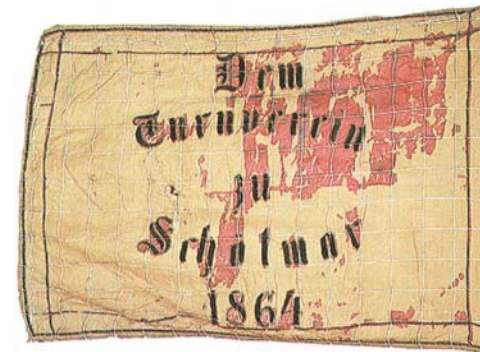 Dem
Turnverein
zu
Schötmar
1864